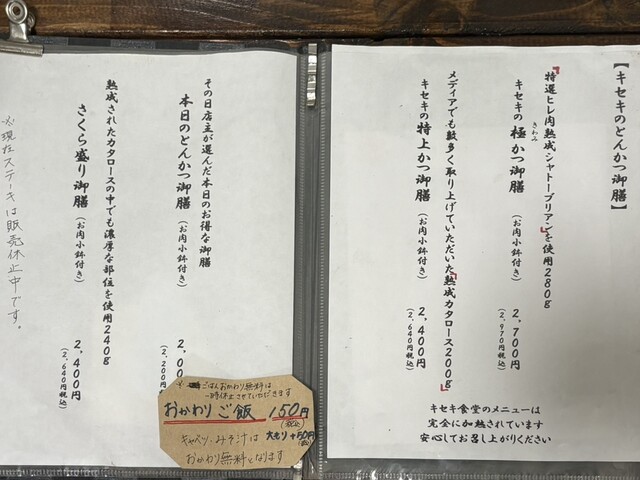 【キセキのとんかつ御膳】
『特選ヒレ肉熟成シャトーブリアン』を使用280g
きわみ
キセキの 極かつ御膳 (お肉小鉢付き) 2,700円
(2,970円税込)
メディアでも数多く取り上げていただいた『熟成カタロース200g』
キセキの 特上かつ御膳 (お肉小鉢付き) 2,400円
(2,640円税込)
キセキ食堂のメニューは
完全に加熱されています
安心してお召し上がりください
その日店主が選んだ本日のお得な御膳
本日のとんかつ御膳 (お肉小鉢付き) 2,0
(2,200円
熟成されたカタロースの中でも濃厚な部位を使用240g
さくら盛り御膳 (お肉小鉢付き) 2,400円
(2,640円税込)
※現在ステーキは販売休止中です。
ごはんおかわり無料は
一時休止させていただきます
おかわりご飯 150円
(税込)
キャベツ、みそ汁は 大もり+50円
おかわり無料となります